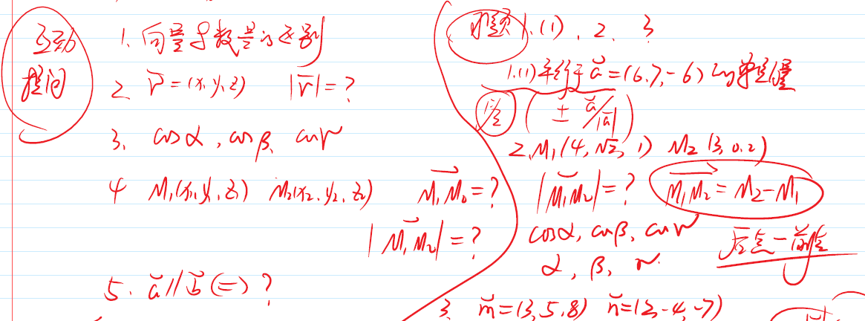 互动
提问
1. 向量与数量的区别
2. r⃗=(x,y,z) |r⃗|=?
3. cosα, cosβ, cosγ
4 M₁(x₁,y₁,z₁) M₂(x₂,y₂,z₂) M₁M₂=?
|M₁M₂|=?
5. a⃗//b⃗ (=) ?
习题 1.(1), 2, 3
1.(1)平行于a⃗=(6,7,-6)的单位向量
(± a⃗/|a⃗|)
2. M₁(4,√2,1) M₂(3,0,2)
|M₁M₂|=? M₁M₂=M₂-M₁
cosα, cosβ, cosγ
α, β, γ 后点-前点
3. m⃗=(3,5,8) n⃗=(2,-4,-7)